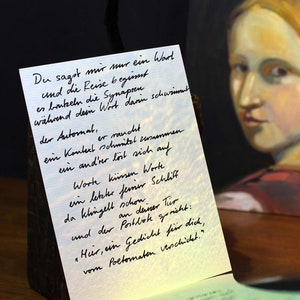 Du sagst mir nur ein Wort
und die Reise beginnt
es brutzeln die Synapsen
während dein Wort darin schwimmt
der Automat,
er raucht
ein Konkul schmilzt zusammen
ein and'rer löst sich auf
Worte küssen Worte
ein letzter feiner Schliff
da klingelt schon
an deiner Tür
und der Postbote spricht:
"Hier, ein Gedicht für dich,
vom Poetomaten verschickt."